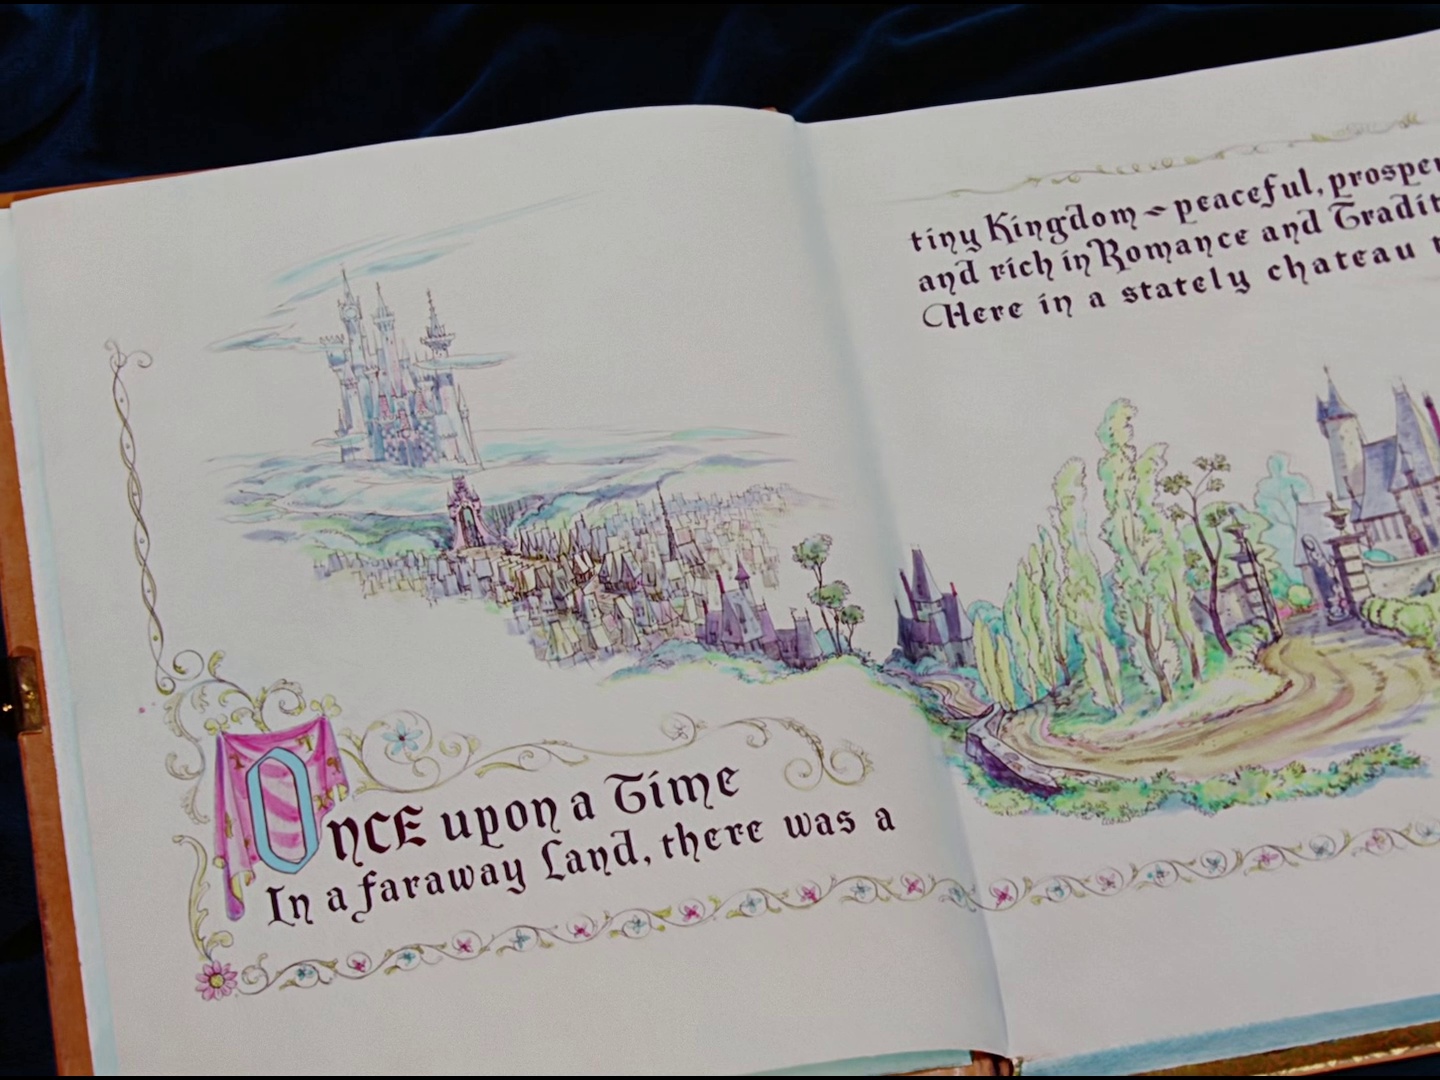 Once upon a Time
In a faraway Land, there was a
tiny Kingdom ~ peaceful, prosper
and rich in Romance and Tradit
Here in a stately chateau t